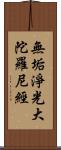 無垢淨光大
陀羅尼經